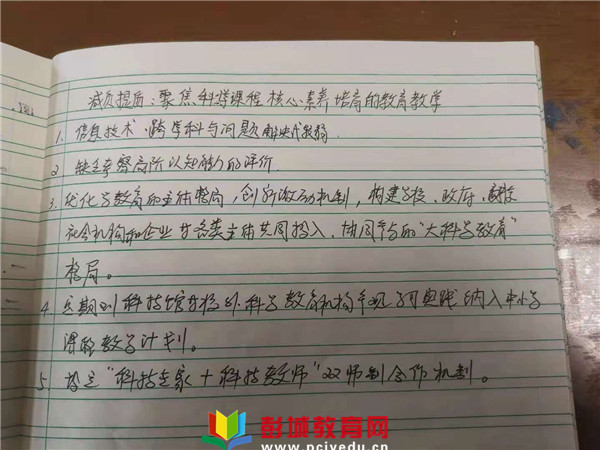 减负提质：聚焦科学课程核心素养培育的教育教学
1. 信息技术、跨学科与问题解决式教学
2 缺乏考察高阶认知能力的评价
3. 优化科学教育的主体格局，创新激励机制，构建学校、政府、高校
社会机构和企业等各类主体共同投入、协同育人的“大科学教育”
格局。
4 定期到科技馆等校外科学教育机构 实践纳入中小学
课程教学计划。
5. 建立“科技专家＋科技教师”双师制合作机制。
彭城教育网
www.pcjyedu.com